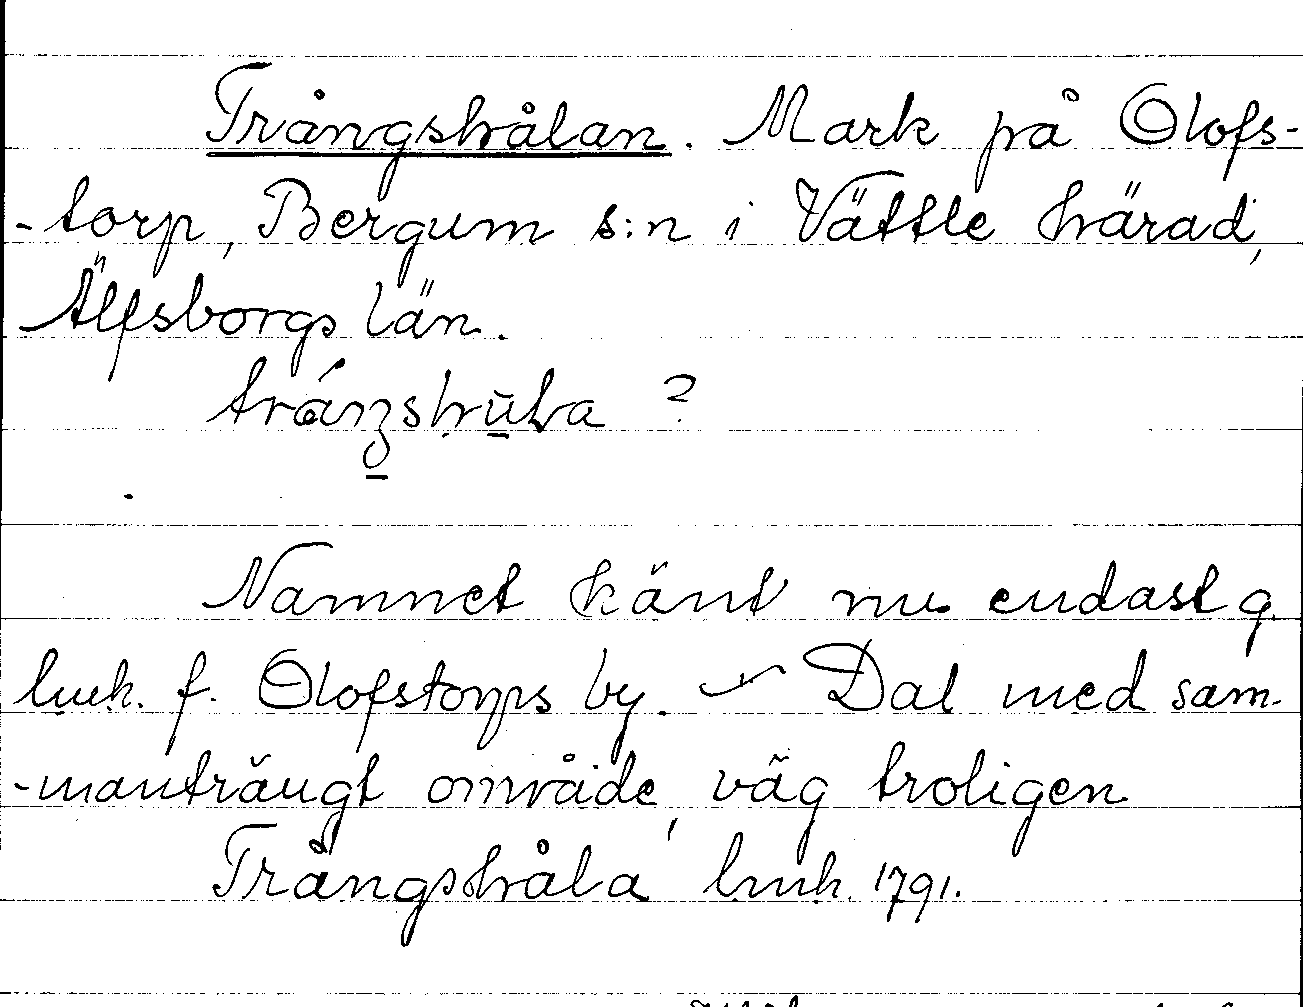 Trångshålan. Mark på Olofs-
-torp, Bergum s:n i Vättle härad,
Älfsborgs län.
?
Namnet känt nu endast g.
lmh. f. Olofstorps by. Dal med sam-
-manträngt område, väg troligen
Trångshåla lmh. 1791.